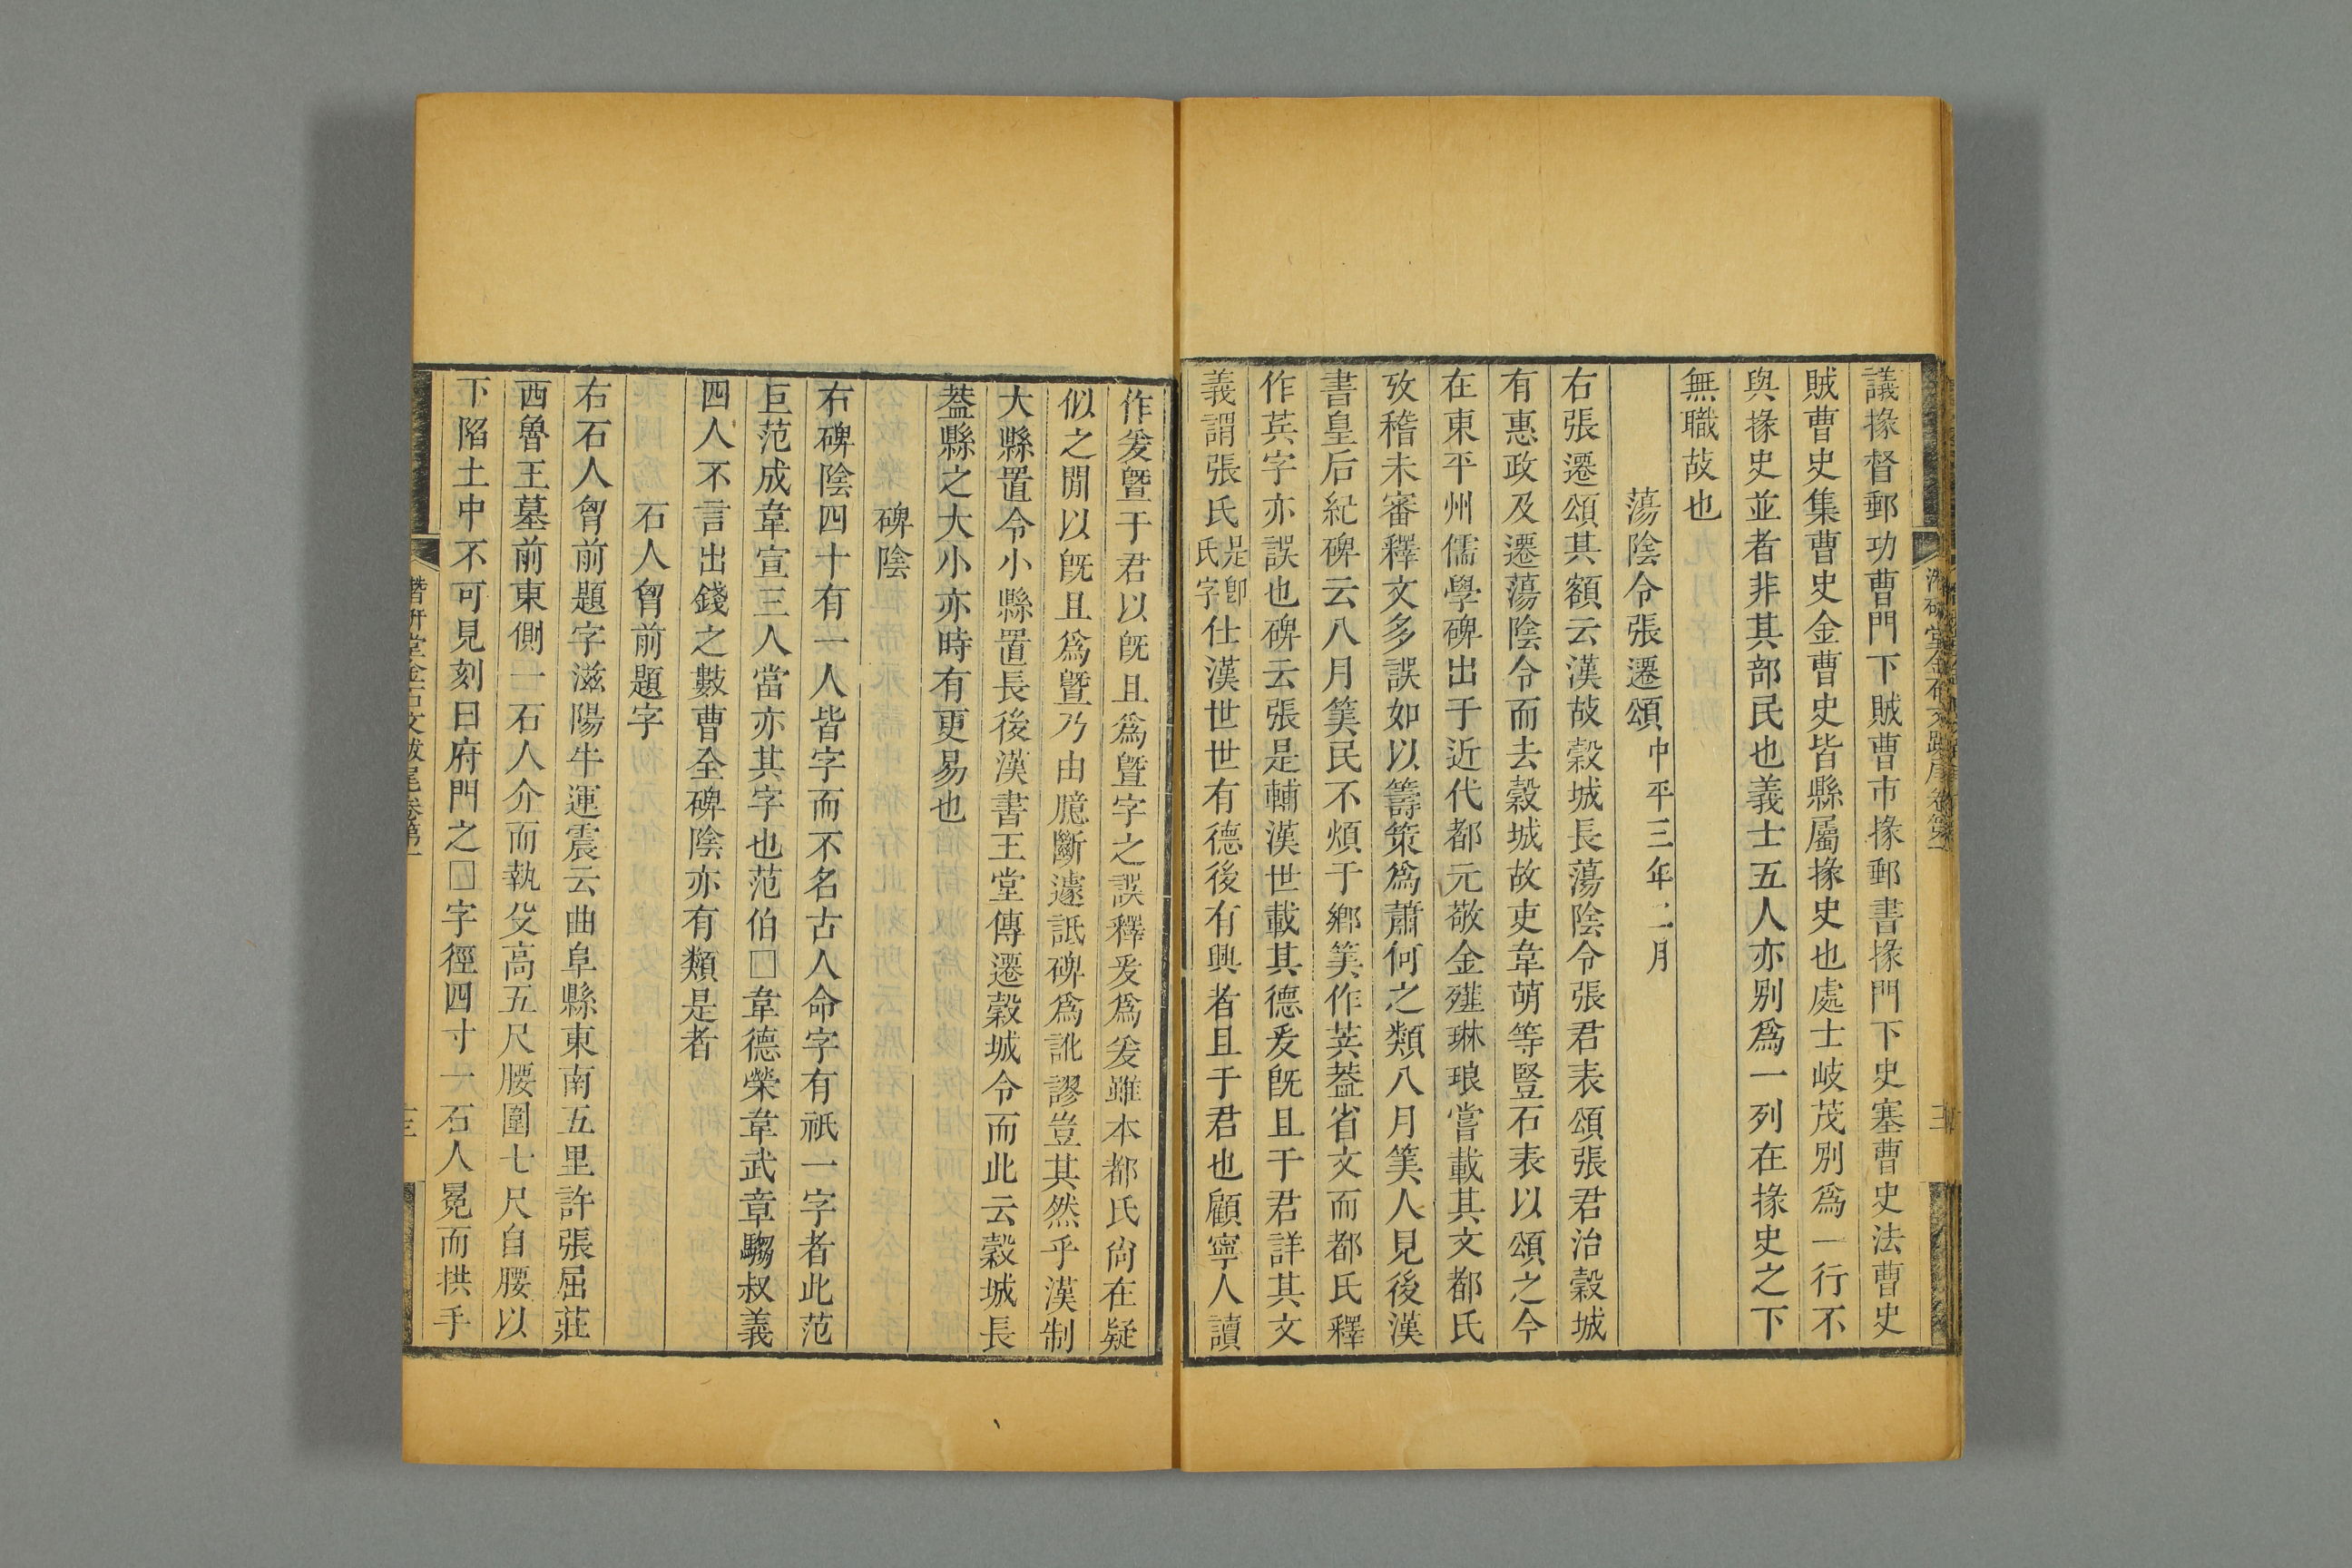 議掾督郵功曹門下賊曹市掾郵書掾門下史塞曹史法曹史
賊曹史集曹史金曹史皆縣屬掾史也處士岐茂別爲一行不
與掾史並者非其部民也義士五人亦別爲一列在掾史之下
無職故也
蕩陰令張遷頌中平三年二月
右張遷頌其額云漢故穀城長蕩陰令張君表頌張君治穀城
有惠政及遷蕩陰令而去穀城故吏韋萌等豎石表以頌之今
在東平州儒學碑出于近代都元敬金薤琳琅嘗載其文都氏
攷稽未審釋文多誤如以籌策爲蕭何之類八月筭人見後漢
書皇后紀碑云八月筭民不煩于鄉筭作䇲葢省文而都氏釋
作其字亦誤也碑云張是輔漢世載其德爰旣且于君詳其文
義謂張氏是卽氏字仕漢世世有德後有興者且于君也顧寧人讀
作爰曁于君以旣且爲曁字之誤釋爰爲爰雖本都氏尙在疑
似之閒以旣且爲曁乃由臆斷遽詆碑爲訛謬豈其然乎漢制
大縣置令小縣置長後漢書王堂傳遷穀城令而此云穀城長
葢縣之大小亦時有更易也
碑陰
右碑陰四十有一人皆字而不名古人命字有祇一字者此范
巨范成韋宣三人當亦其字也范伯□韋德榮韋武章騶叔義
四人不言出錢之數曹全碑陰亦有類是者
石人胷前題字
右石人胷前題字滋陽牛運震云曲阜縣東南五里許張屈莊
西魯王墓前東側一石人介而執殳高五尺腰圍七尺自腰以
下陷土中不可見刻曰府門之□字徑四寸一石人冕而拱手
潛研堂金石文跋尾卷第一